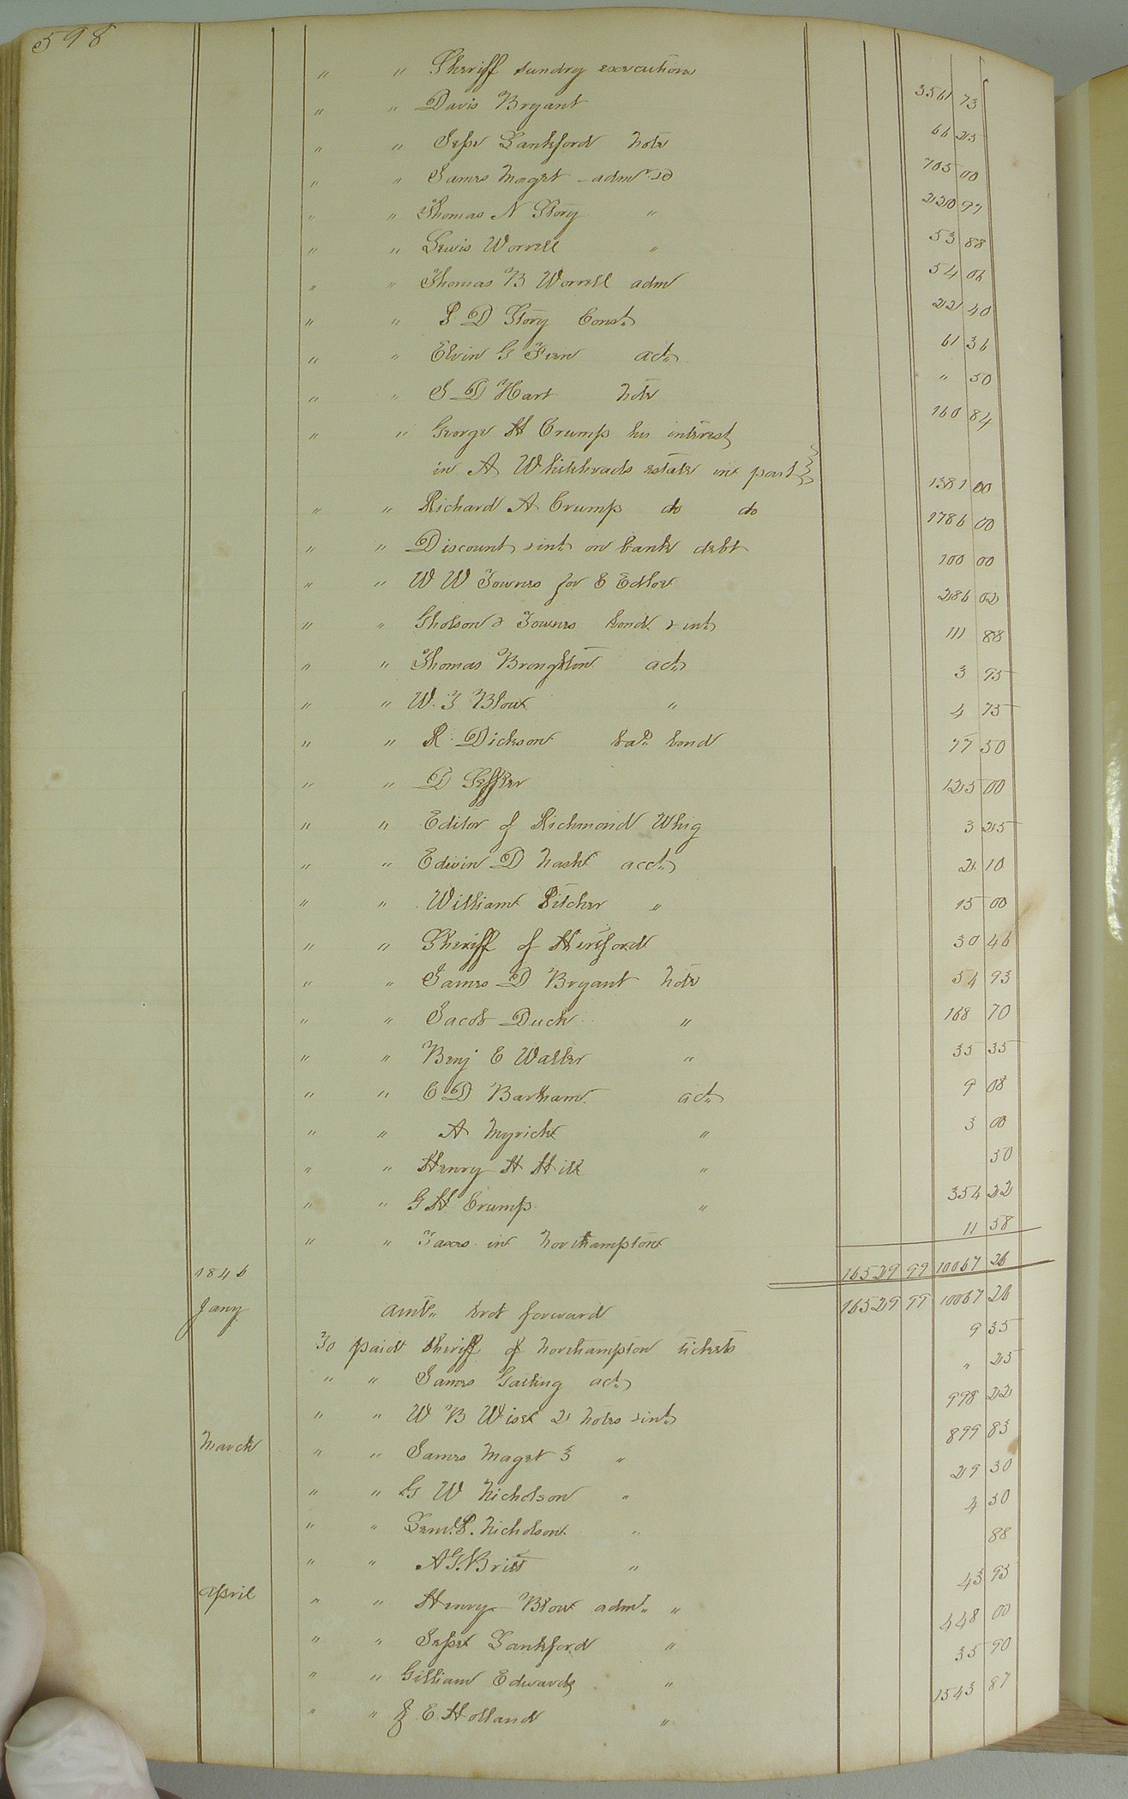 598
" " Sheriff sundry executions 3561 73
" " Davis Bryant 66 25
" " Jesse Lankford note 705 00
" " James Maget adm 220 97
" " Thomas N Story " 53 88
" " Lewis Worrell " 54 06
" " Thomas B Worrell adm 22 40
" " S D Story Const. 61 36
" " Elvin G act. " 50
" " J D Hart note 160 84
" " George H Crump his interest
in A Whiteheads estate in part 1381 00
" " Richard A Crump do do 1786 00
" " Discount & int on bank debt 100 00
" " W W Towns for E 286 02
" " Gholson & Towns bond & int 111 88
" " Thomas Broughton act. 3 95
" " W. J Blow " 4 75
" " R. Dickson bal. bond 77 50
" " D 125 00
" " Editor of Richmond Whig 3 25
" " Edwin D Nash acct. 2 10
" " William Pitcher " 15 00
" " Sheriff of Hertford 30 46
" " James D Bryant note 54 93
" " Jacob Duck " 168 70
" " Benj E Waller " 35 35
" " C D Barham act. 9 08
" " A Myrick " 3 00
" " Henry H Hill " 50
" " G H Crump " 354 22
" " Taxes in Northampton 11 58
1846 16529 99 10067 26
Jany amt. brot forward 16529 99 10067 26
To paid Sheriff of Northampton tickets 9 35
" " James Gatling act. " 25
" " W B Wise 2 notes & int. 998 22
March " " James Maget 3 " 899 83
" " G W Nicholson " 29 30
" " P. Nicholson " 4 50
" " A G. Britt " 88
April " " Henry Blow adm. " 43 93
" " Jesse Lankford " 448 00
" " Gilliam Edwards " 35 90
" " J E Holland " 1543 87